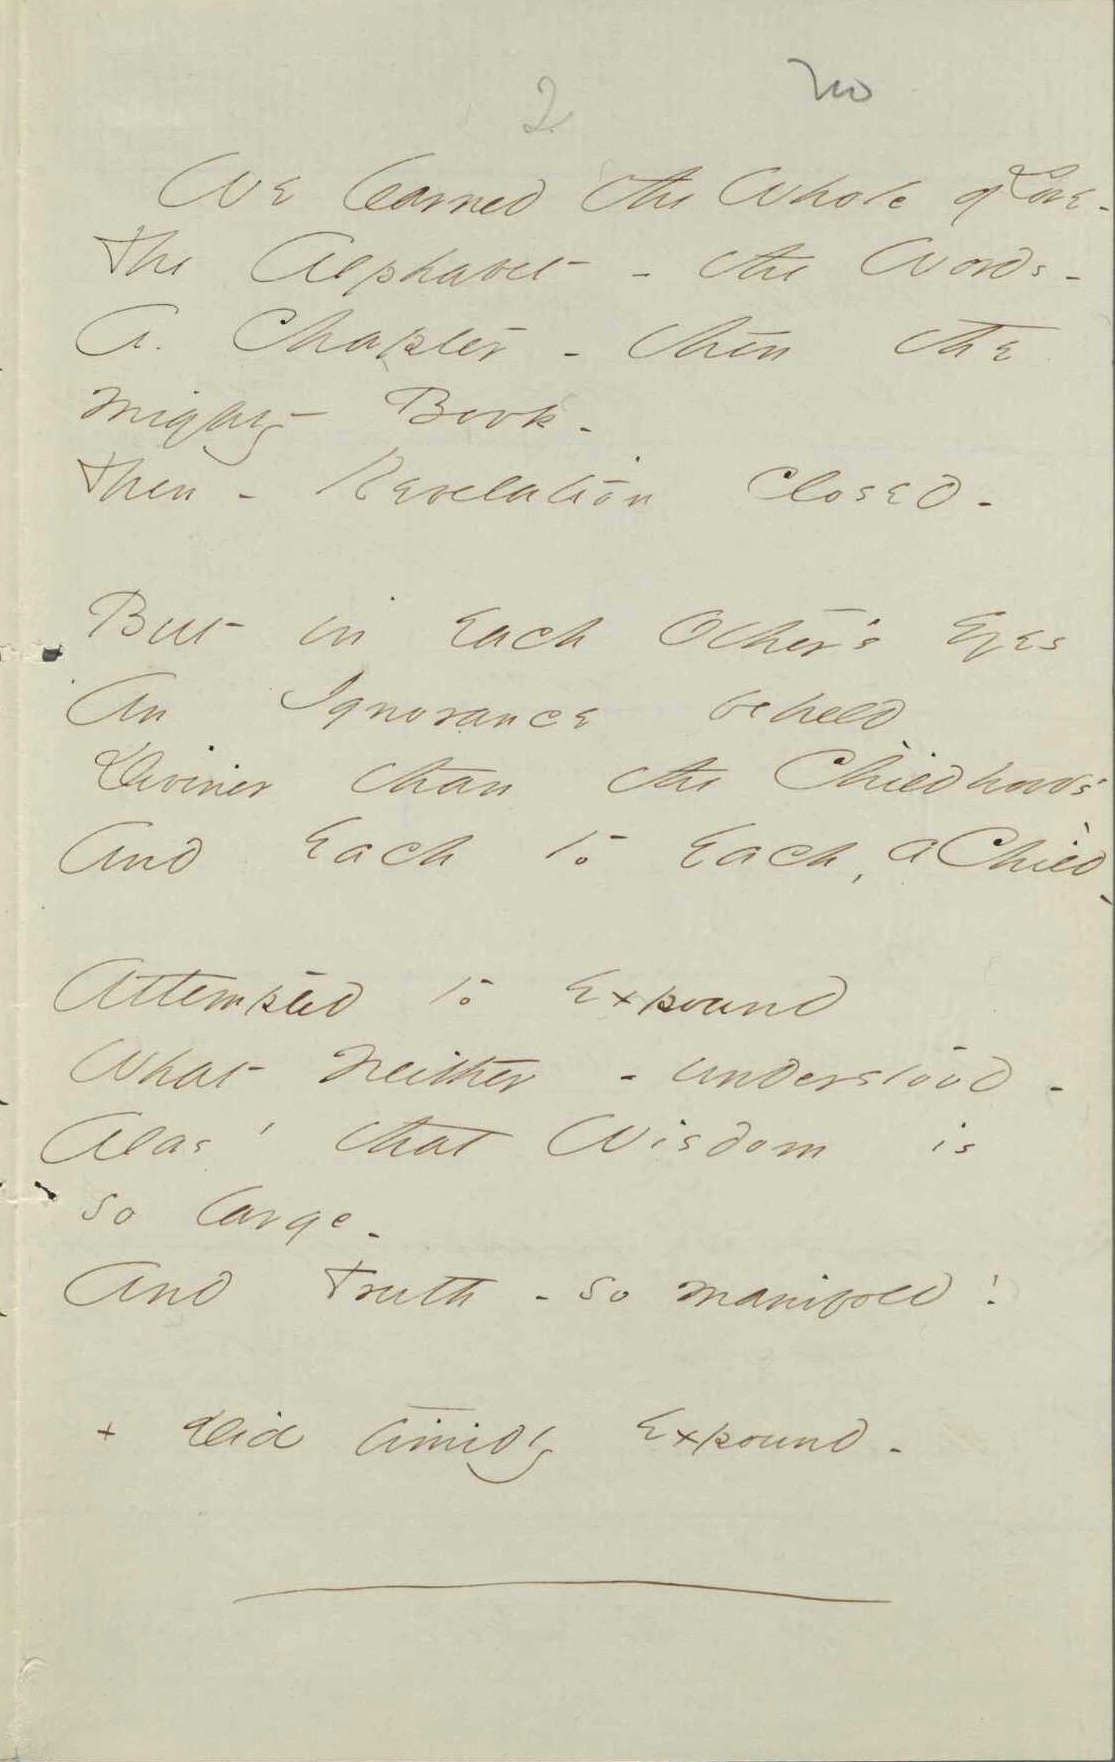 2
We learned the Whole of Love -
The Alphabet - the Words -
A Chapter - then the
mighty Book -
Then - Revelation closed -
But in Each Other's Eyes
An Ignorance beheld
Diviner than the Childhood's
And Each to Each, a Child -
Attempted to Expound
What neither - understood -
Alas! that Wisdom is
so large -
And Truth - so manifold!
+ Did timidly Expound -